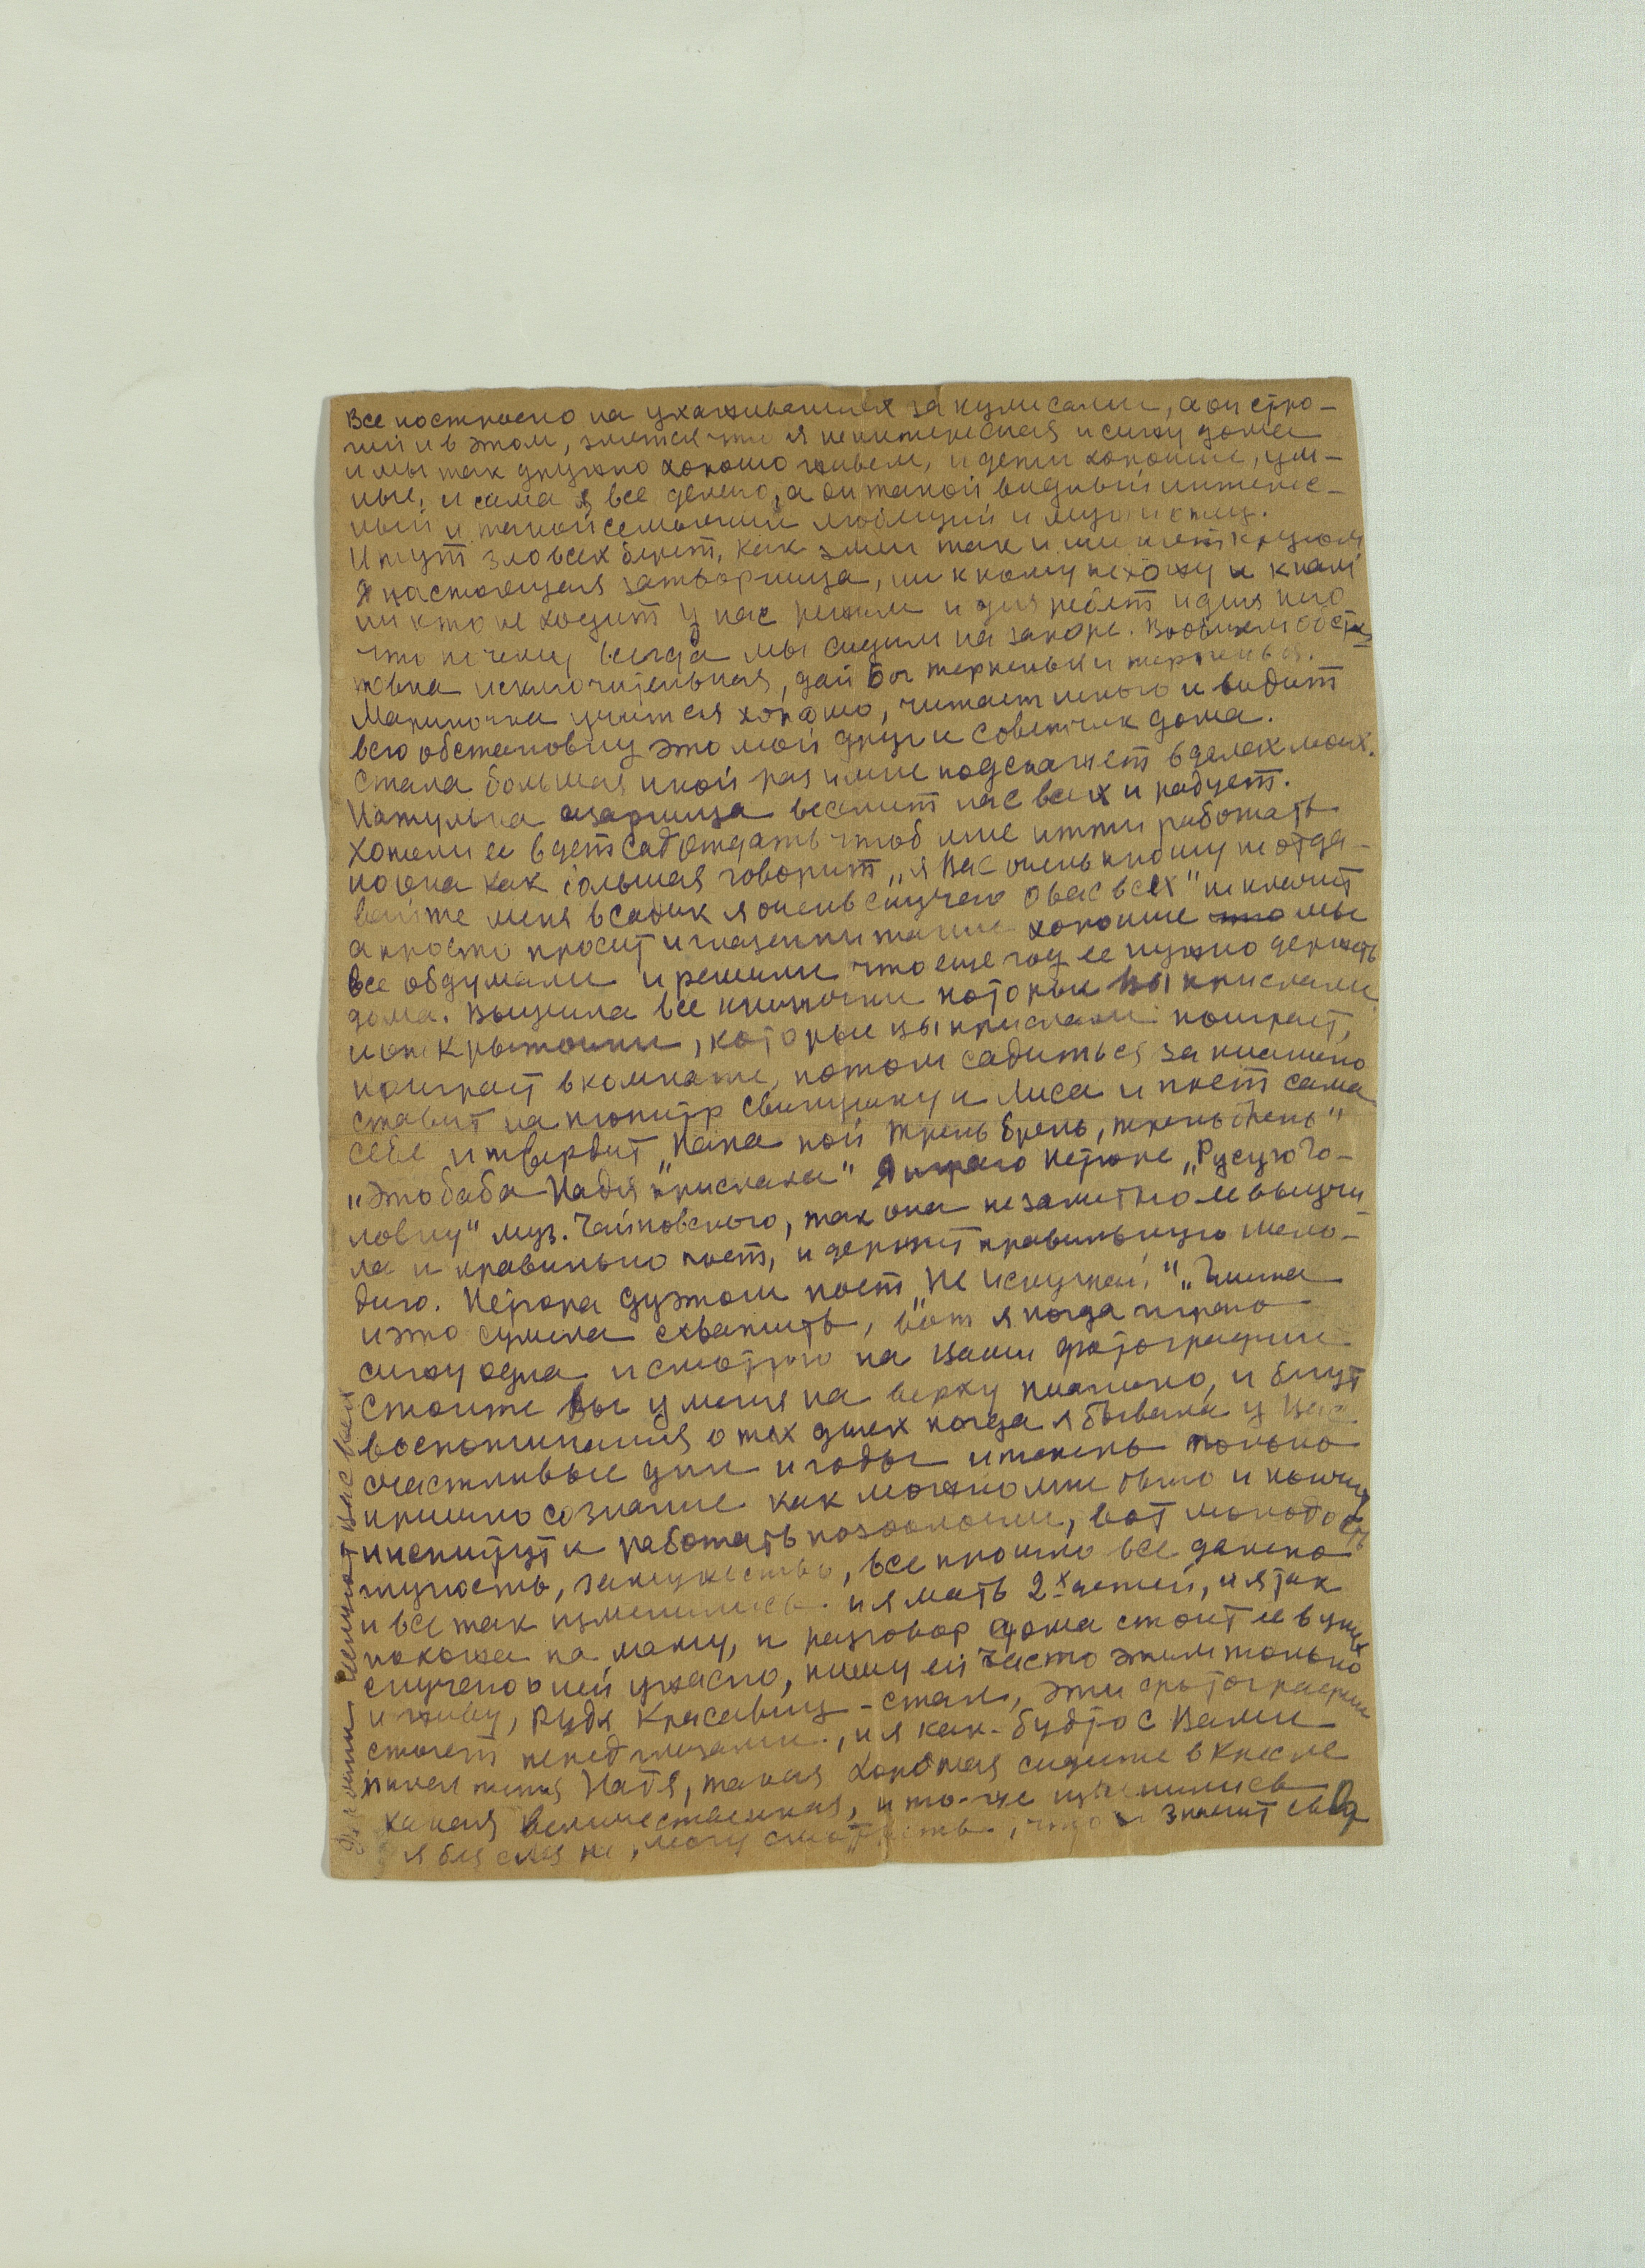 Все построено на ухаживаниях за кулисами, а он стро-
гий и в этом, злятся что я не интересная и сижу дома
и мы так дружно хорошо живем, и дети хорошие, ум-
ные, и сама я все делаю, а он такой видный интерес-
ный и такой семейный любящий и музыку.
И тут зло всех берет, как змеи так и шипят кругом
Я настоящая затворница, ни к кому не хожу и к нам
ни кто не ходит у нас режим и для ребят и для него
что по чему, всегда мы сидим на запоре. Вообщем обста
новка исключительная, дай Бог терпенья и терпенья.
Мариночка учится хорошо, читает много и видит
всю обстановку это мой друг и советчик дома.
Стала большая иной раз и мне подскажет в делах моих.
Натулька озорница веселит нас всех и радует.
Хотели ее в детсад отдать чтоб мне итти работать
но она как большая говорит „я Вас очень прошу не отда-
вайте меня в садик я очень скучаю о вас всех" не плачит
а просто просит и глазенки такие хорошие мы
все обдумали и решили что еще год ее нужно держать
дома. Выучила все книжечки которые Вы прислали
и открыточки, которые вы прислали поиграет,
поиграет в комнате, потом садиться за пианино
ставит на пюпитр свинушку и Лиса и поет сама
себе и твердит „Папа пой трень брень, трень брень"
„это баба Надя прислала" Я играю Петюне „Русую Го-
ловку" муз. Чайковского, так она незаметно ее выучи
ла и правильно поет, и держит правильную мело-
дию. Петюна дуэтом поет „Не искушай," „Глинка
и это сумела схватить, вот я когда играю
сижу одна и смотрю на Ваши фотографии
стоите Вы у меня на верху пианино, и бегут
воспоминания о тех днях когда я бывала у Вас
счастливые дни и годы и теперь только
пришло сознание как можно мне было и кончить
институт и работать по зоологии, вот молодость
глупость, замужество, все прошло все далеко
и все так изменились. и я мать 2х детей, и я так
похожа на маму, и разговор дома стоит ее в ушах
скучаю о ней ужасно, пишу ей часто этим только
и живу, Рудя Красавиц-стал, эти фотографии
стоят перед глазами, и я как-будто с Вами
милая тетя Надя, такая хорошая сидите в кресле
такая величественная, и то-же изменились
я без слез не могу смотреть, что значит
целуют Вас всех